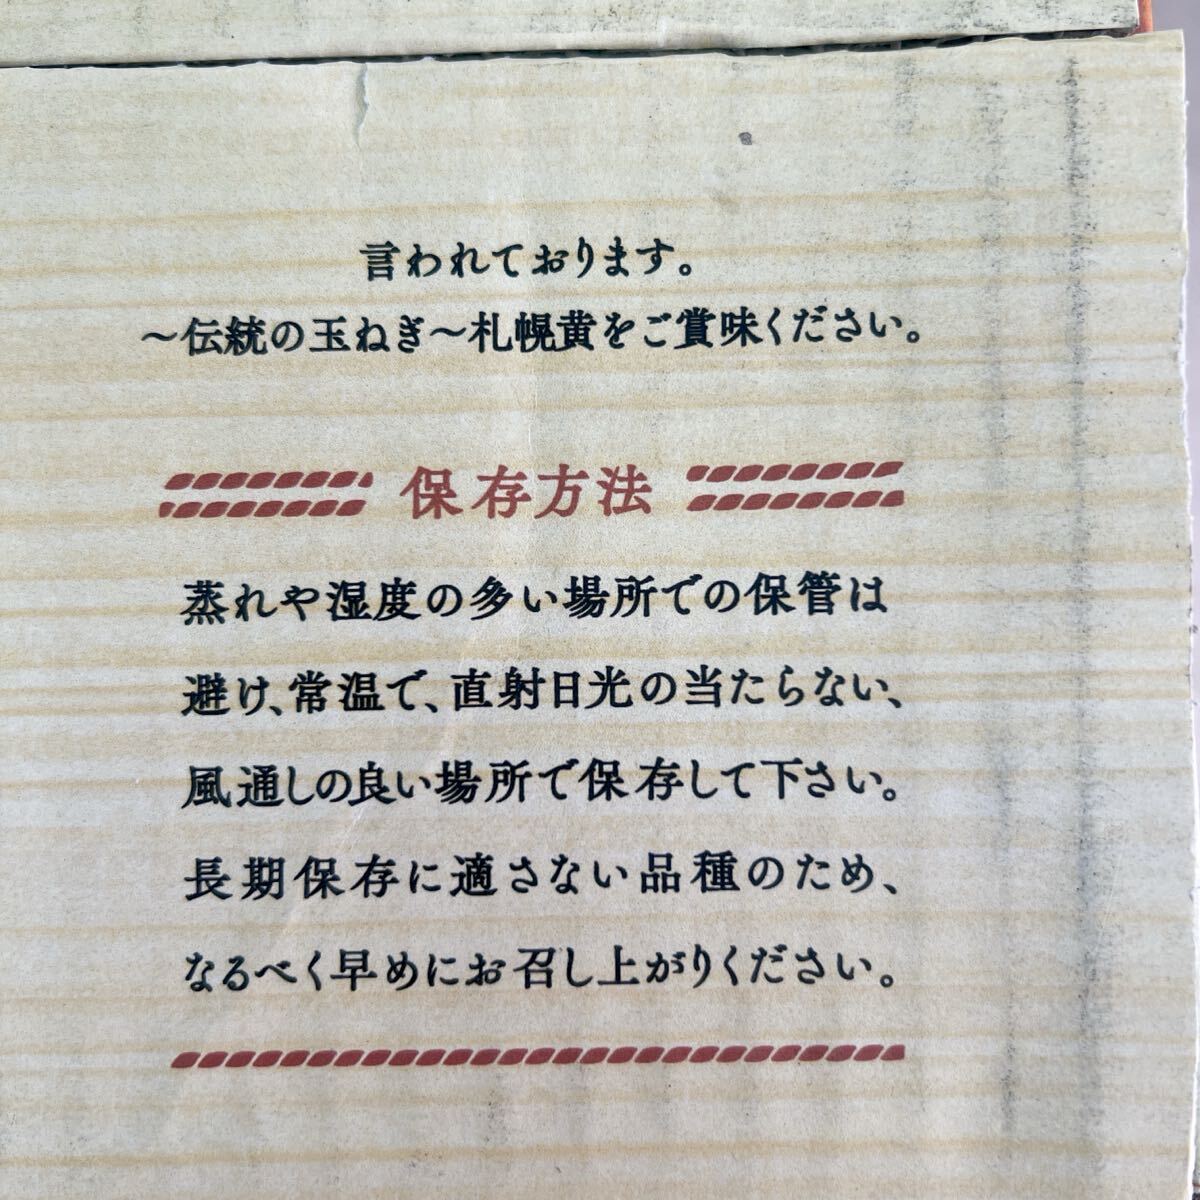 言われております。
～伝統の玉ねぎ～札幌黄をご賞味ください。
保存方法
蒸れや湿度の多い場所での保管は
避け、常温で、直射日光の当たらない、
風通しの良い場所で保存して下さい。
長期保存に適さない品種のため、
なるべく早めにお召し上がりください。